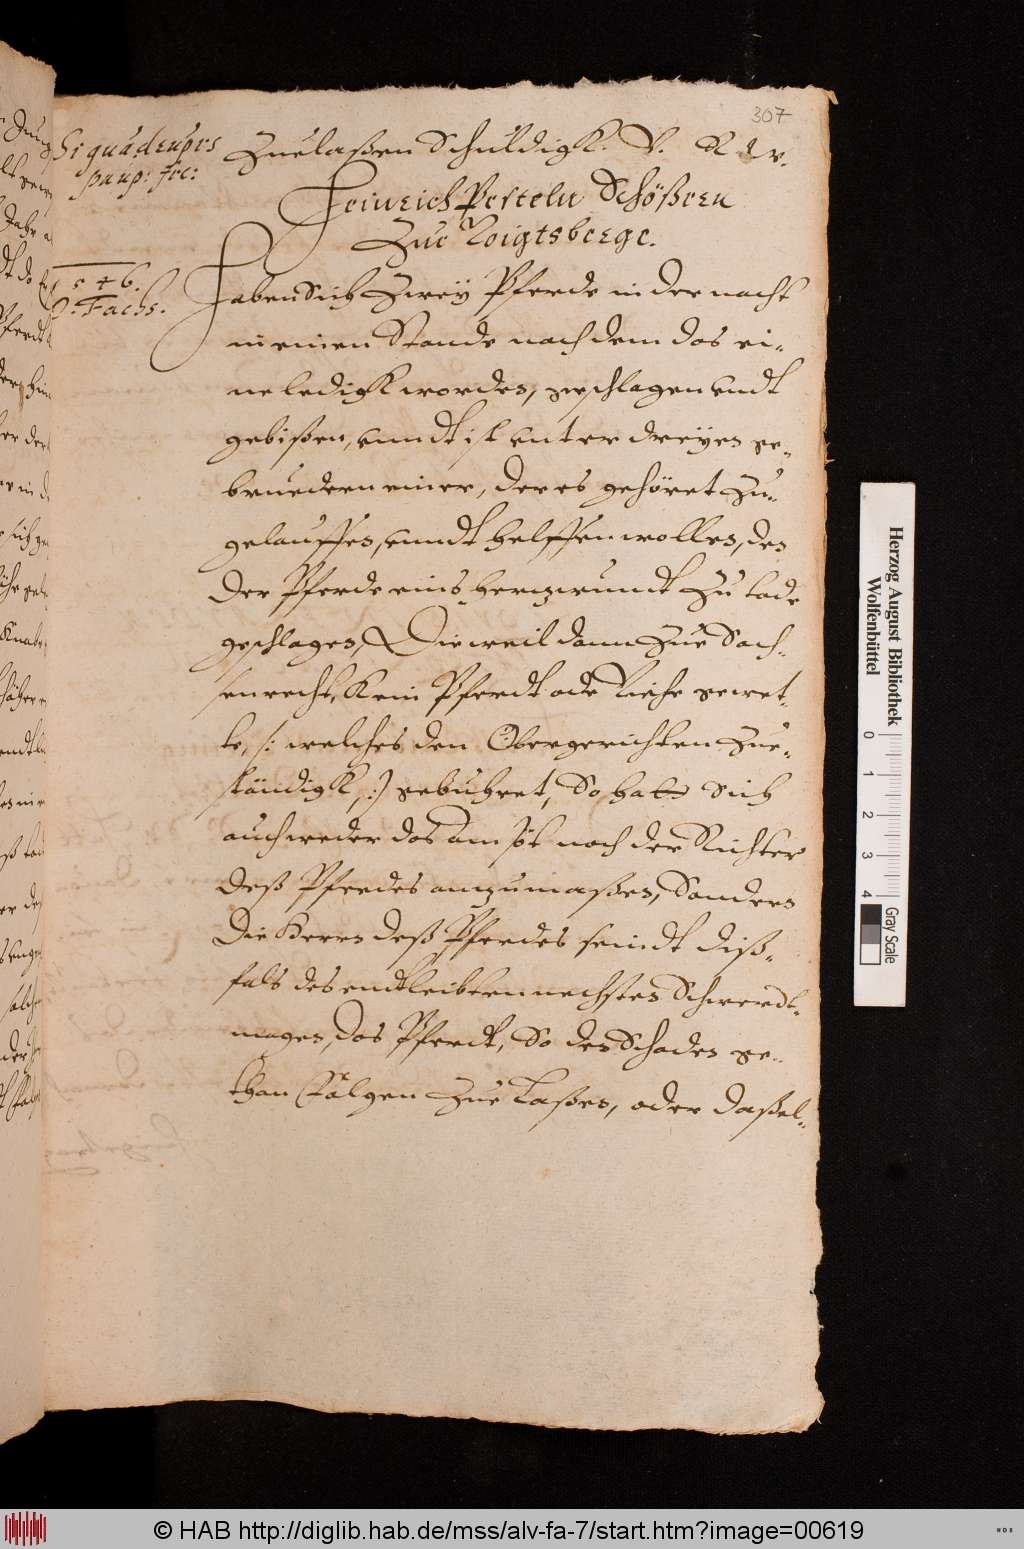 307
Si quadrupes
paup: fec:
Zuelaßen Schuldigk. V. R. w.
Heinrich Pesteln Schößern
Zue Voigtsberge.
1546.
D. Fachs.
Haben sich Zweÿ Pferde in der nacht
in einen Stande nach dem das ei-
ne ledigk worden, geschlagen undt
gebißen, unndt ist unter dreÿen ge-
bruedern einer, der es gehöret Zu-
gelauffen, unndt helffen wollen, den
der Pferde eins herzwundt Zu tode
geschlagen, Dieweil dann Zue Sach-
senrecht, Kein Pferdt ode Viehe gewet-
te, /: welches den Obergerichten Zue-
ständigk, :/ gebuhret, So hatt sich
auch weder das Ampt noch der Richter
deß Pferdes anzumaßen, Sondern
die Herrn deß Pferdes seindt diß-
fals des endtleibten nechsten Schwerdt-
magen, das Pferdt, So den Schaden ge-
than folgen Zue Laßen, oder daßel-
Herzog August Bibliothek
Wolfenbüttel
0 1 2 3 4
Gray Scale
© HAB http://diglib.hab.de/mss/alv-fa-7/start.htm?image=00619